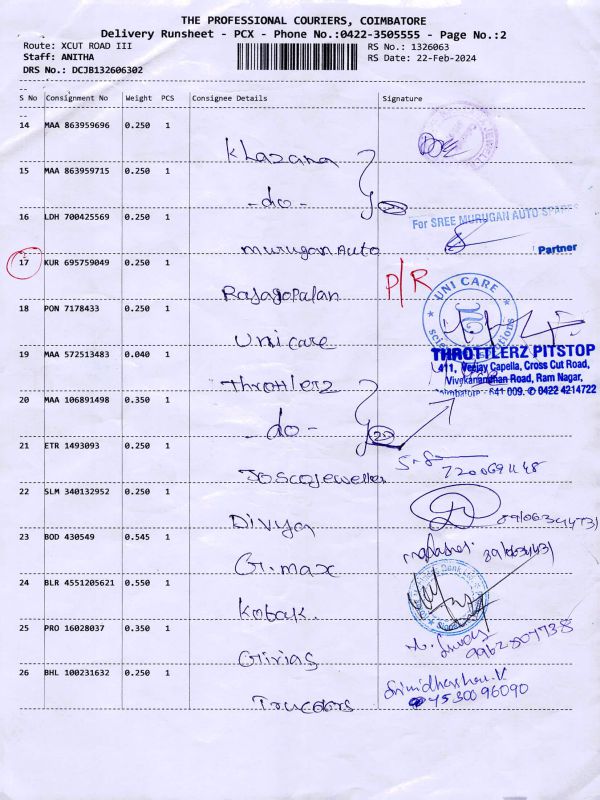 THE PROFESSIONAL COURIERS, COIMBATORE
Delivery Runsheet - PCX - Phone No.:0422-3505555 - Page No.:2
Route: XCUT ROAD III RS No.: 1326063
Staff: ANITHA RS Date: 22-Feb-2024
DRS No.: DCJB132606302
S No Consignment No Weight PCS Consignee Details Signature
14 MAA 863959696 0.250 1 Khazana
15 MAA 863959715 0.250 1 -do-
16 LDH 700425569 0.250 1 Murugan Auto For SREE MURUGAN AUTO SPARES
Partner
17 KUR 695759049 0.250 1 Rajagopalan P/R
18 PON 7178433 0.250 1 Unicare UNI CARE
19 MAA 572513483 0.040 1 Throttlerz THROTTLERZ PITSTOP
411, Veejay Capella, Cross Cut Road,
Vivekanandhan Road, Ram Nagar,
Coimbatore - 641 009. ✆ 0422 4214722
20 MAA 106891498 0.350 1 -do-
21 ETR 1493093 0.250 1 Joscojeweller 7200691148
22 SLM 340132952 0.250 1 Divya
23 BOD 430549 0.545 1 G.max
24 BLR 4551205621 0.550 1 Kotak
25 PRO 16028037 0.350 1 Girias 9962807738
26 BHL 100231632 0.250 1 Trucdors Srinidharshan.K
7530096090